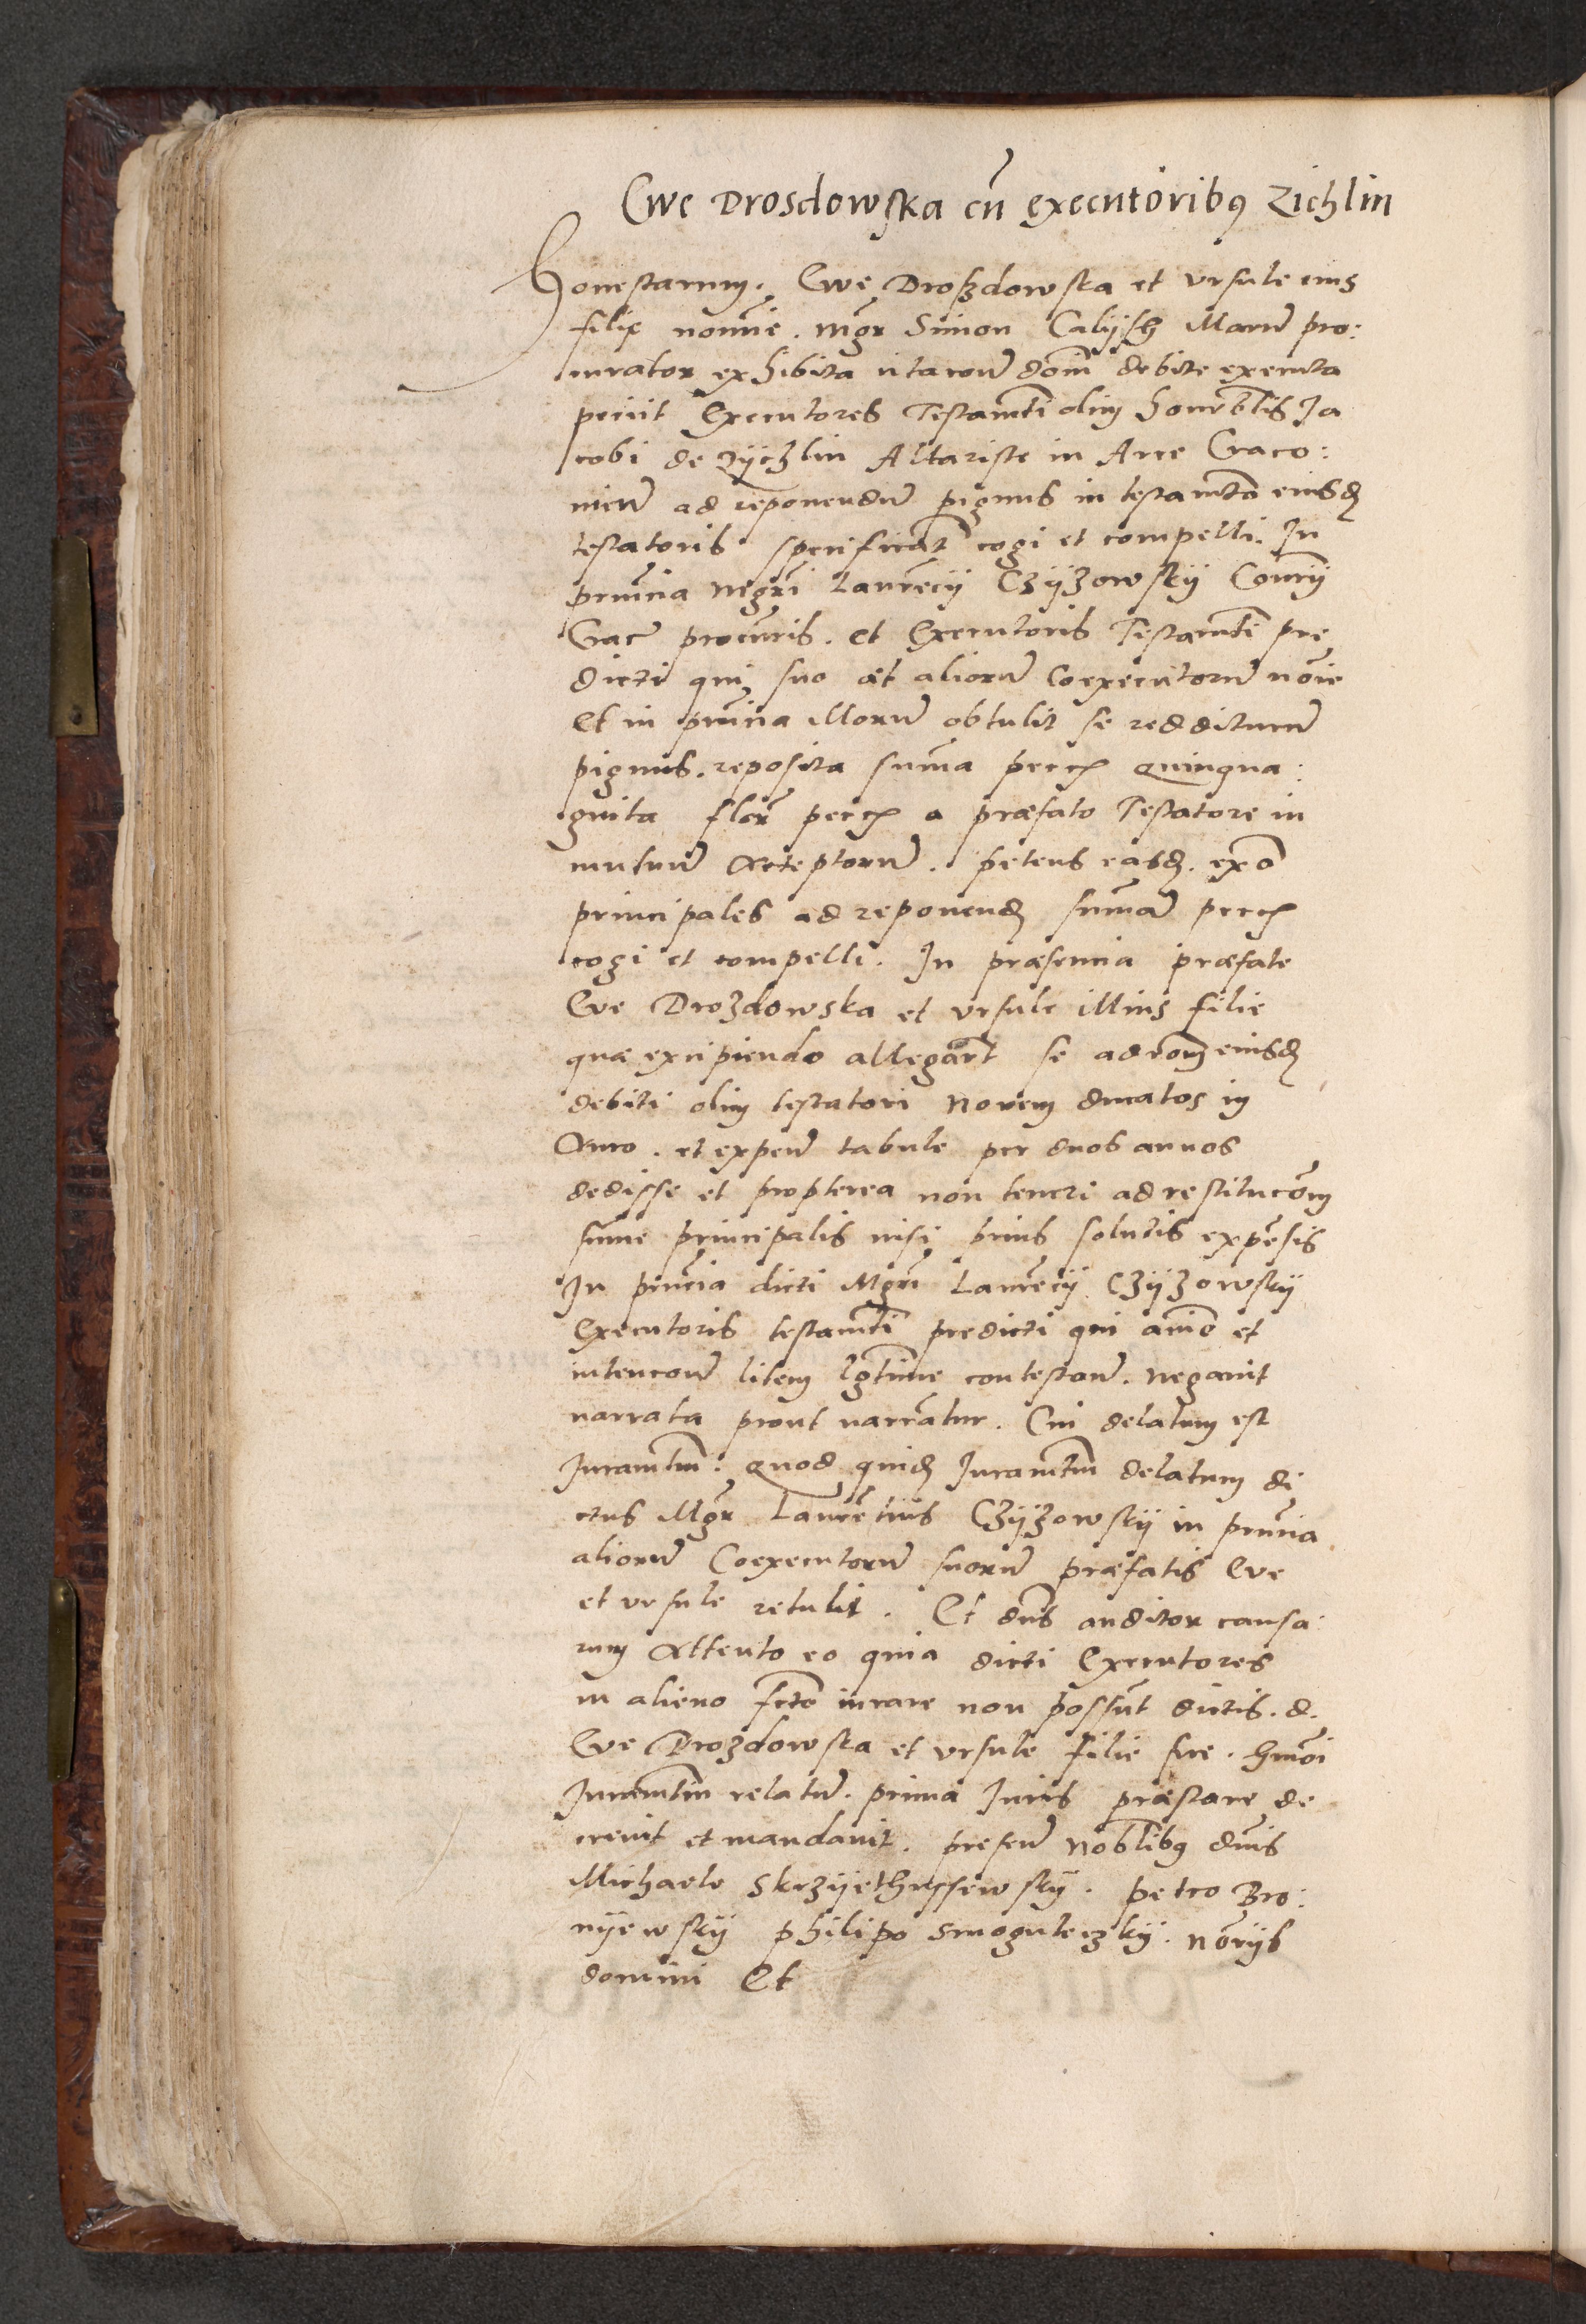 Ewe Drosdowska cū executoribꝯ Zichlin
Honestarum. Ewe Droszdowska et Vrsule eius
filie noīe. mḡr Simon Calijsch Marū pro:
curator exhibita citacoē dōm debite executa
peciit Executores Testamēti olim honorabilis Ja
cobi de Zyczlin Altariste in Arce Craco:
vieñ ad reponendū pignus in testamēto eiusd
testatoris specificat cogi et compelli. In
pñcia mḡri Laurēcij Czyżowskij Consrij
Crac procuris. et Executoris Testamēti pre
dicti qui suo āc aliorū Coexecutorū nōie
Et in pñcia Morū obtulit se redditurū
pignus. reposita sūma pecch quinqua:
ginta flor pecch a præfato Testatore in
mutuū acceptorū. petens easd. exō
principales ad reponend sūmā pecch
cogi et compelli. In præsencia præfate
Eve Drozdowska et Vrsule illius filie
quæ excipiendo allegarūt se ad rōem eiusd
debiti olim testatori Novem ducatos in
Auro. et expeñ tabule per duos annos
dedisse et propterea non teneri ad restitucōm
sūme principalis nisi prius solutis expēsis
In pñcia dicti Mḡri Laurēcij Czyżowskij
Executoris testamēti predicti qui aīo et
intencoē litem lḡtime contestañ. negavit
narrata prout narrātur. Cui delatum est
Juramētm. quod quid Juramētm delatum di
ctus Mḡr Laurētius Czyżowskij in pñcia
aliorū Coexecutorū suorū præfatis Eve
et Vrsule retulit. Et dn̄s auditor causa:
rum Attento eo quia dicti Executores
in alieno fcto iurare non possūt dictis. d.
Eve Drozdowska et Vrsule filie sue. hmōi
Juramētm relatū. prima Juris præstare de
crevit et mandavit. preseñ nobilibꝯ dn̄is
Michaele Skrzyethussewskÿ. petro Bro:
nÿewskÿ philipo Smoguleczkÿ. nōrijs
domini Et